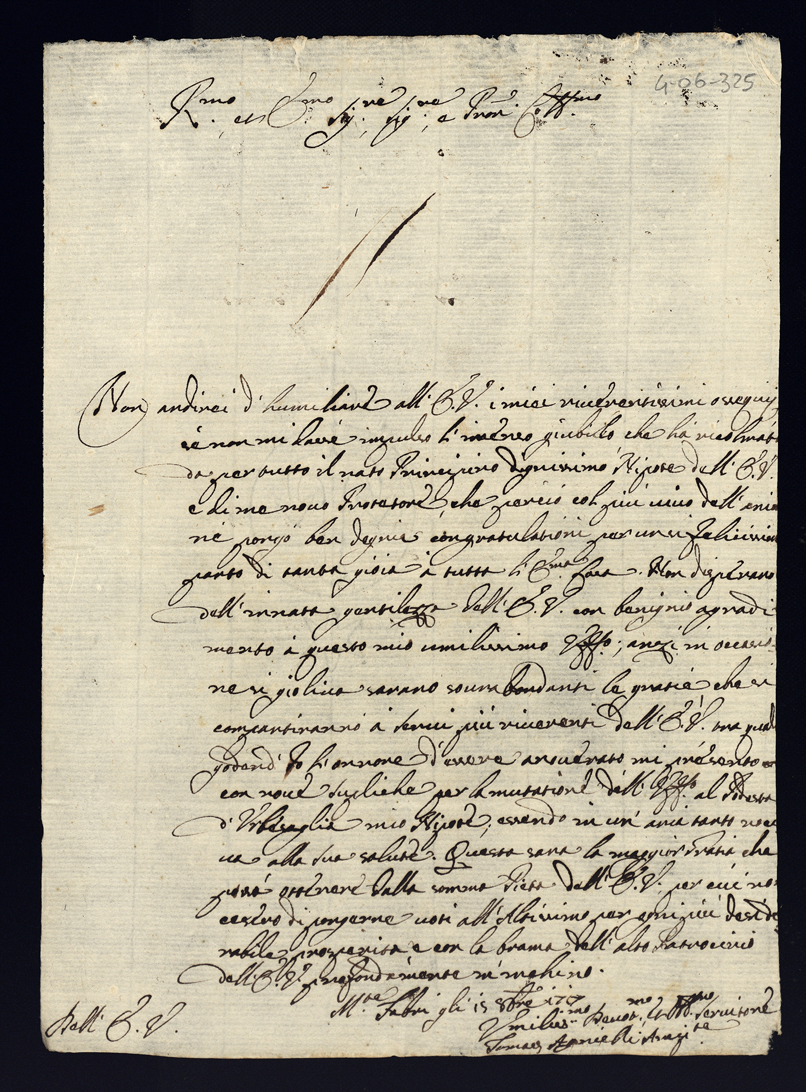 4-06-325
R.mo et E.mo Sig.re Sig.re e Pron. Col.mo
Non ardirei d'humiliare all'E.V. i miei riverentissimi ossequij
se non mi dasse impulso l'imenso giubilo che hà ricolmato
da per tutto il nato Principino dignissimo Nipote dell'E.V.
e di me novo Protettore che perciò col più vivo dell'anim
ne porgo ben degnie congratulationi per un si felicissim
parto di tanta gioia à tutta l'E.ma Casa. Non disperano
dell'innata gentilezza dell'E.V. con benignio agradi
mento à questo mio umilissimo; anzi in occasio
ne si gioliva sarano sourabondanti le gratie che si
compartiranno à servi più riverenti dell'E.V. tra quali
godend'Io l'onnore d'essere anoverato mi presento
con nove supliche per la mutatione dell' al Podesta
d'Urbisaglia mio Nipote, essendo in un'aria tanto noci
va alla sua salute. Questa sarà la maggior gratia che
potrò ottenere dalla somma Pietà dell'E.V. per cui no
cesserò di porgerne voti all'Altissimo per ogni più deside
rabile prosperità e con la brama dell'alto Patrocinio
dell'E.V. profondamente m'inchino.
M.te Fabri gli 15 8bre 17
Dell'E.V.
Umiliss.mo Devot.mo et Obb.mo Servitore